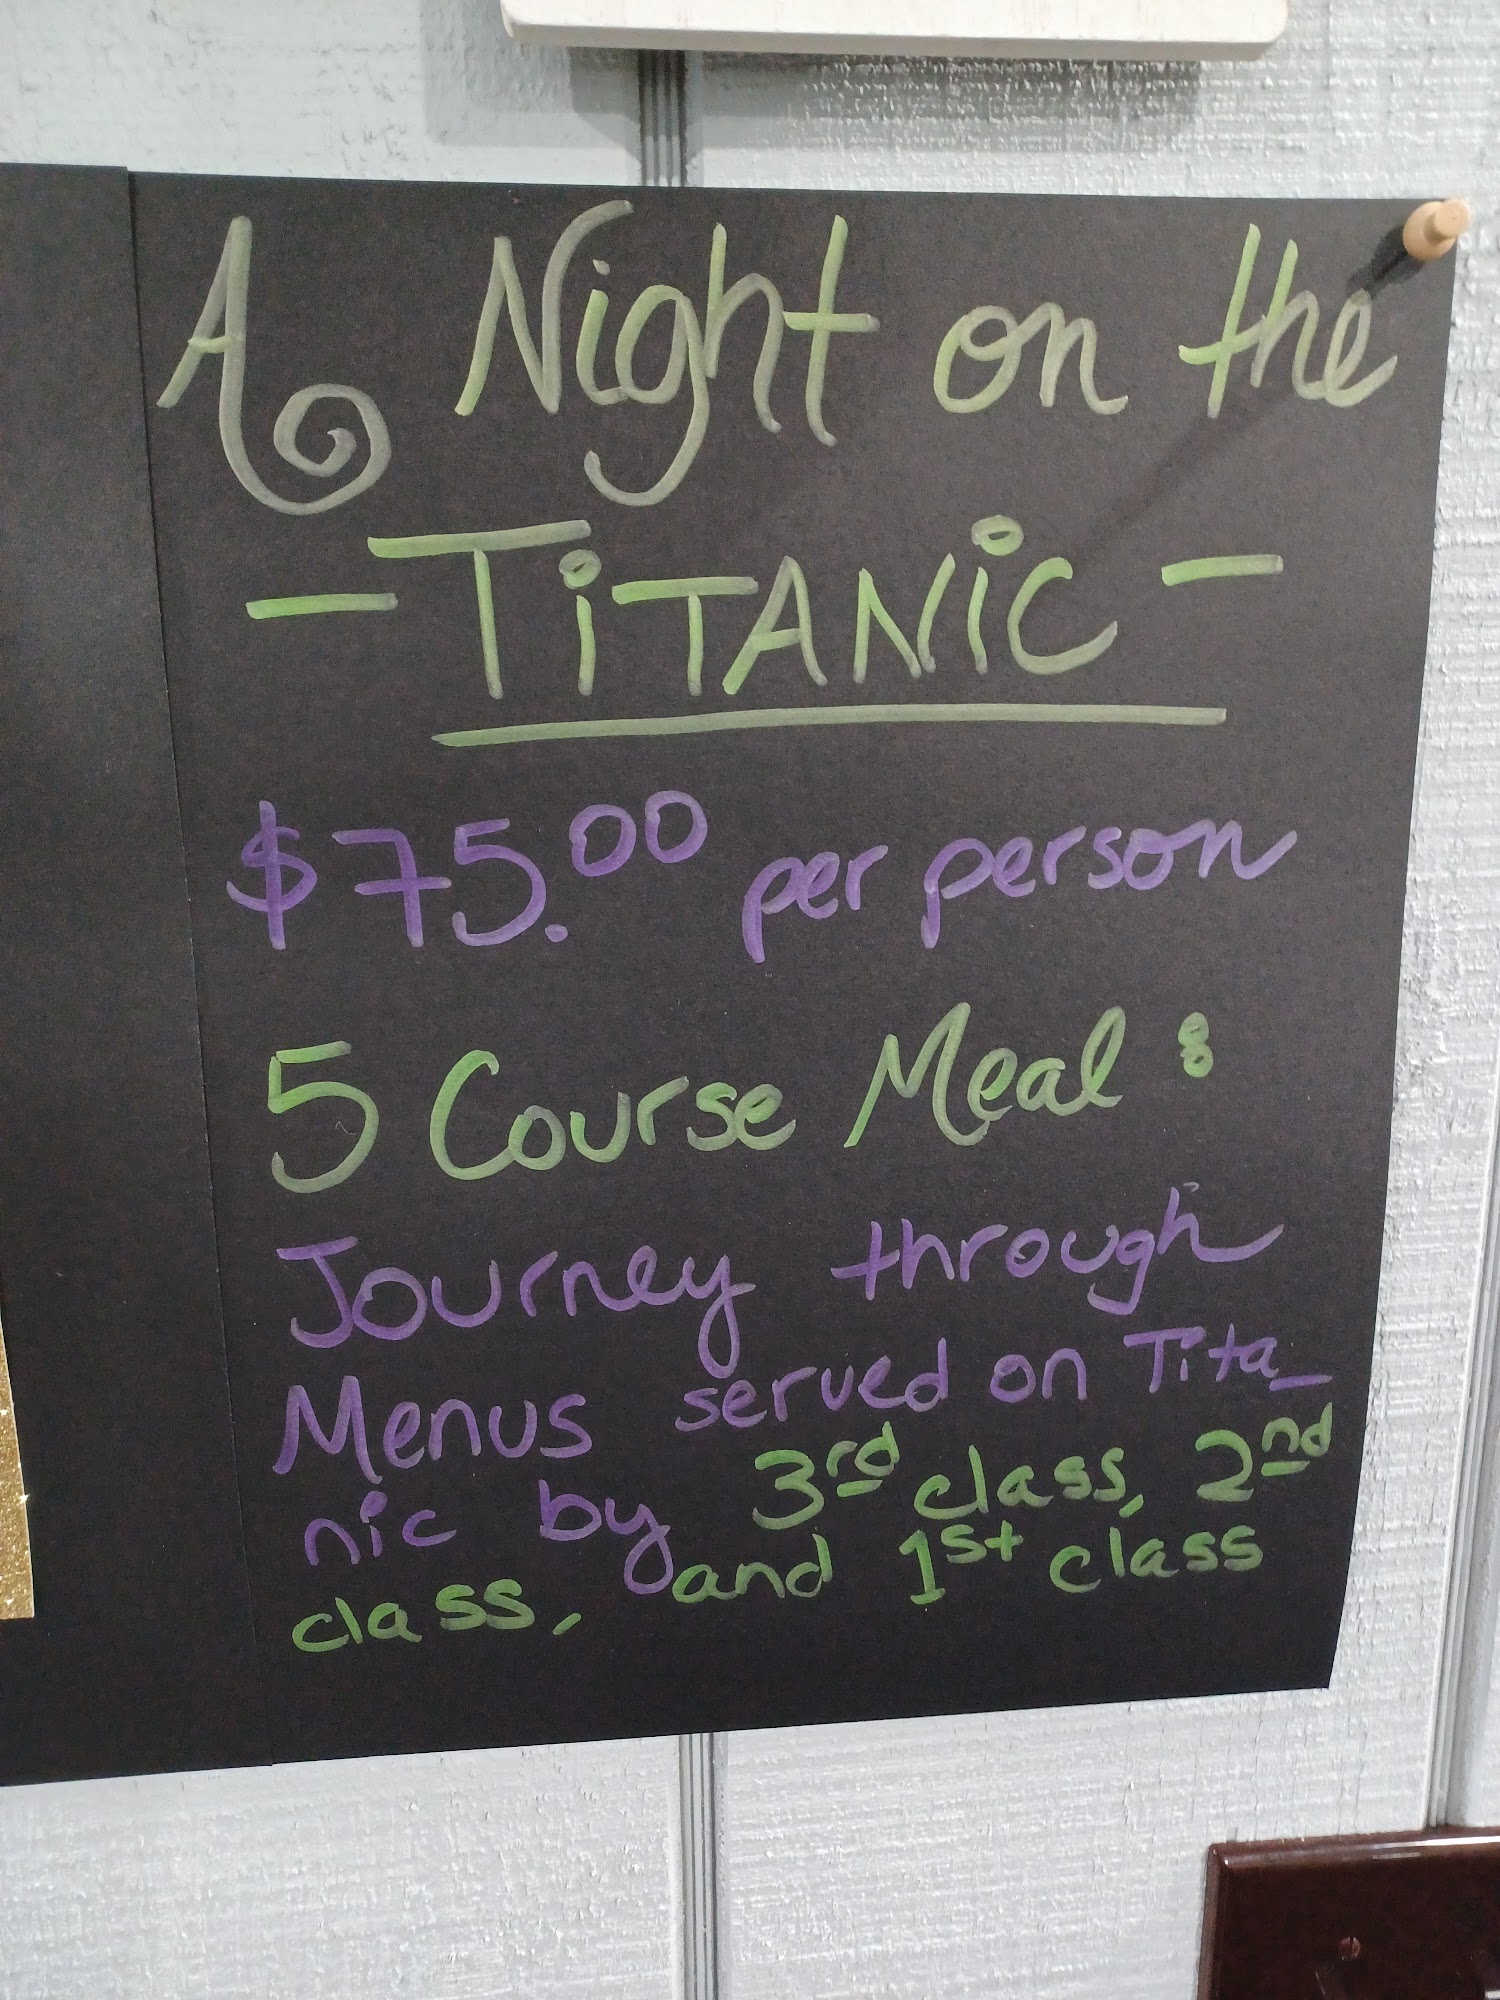 A Night on the
- TiTANiC -
$75.00 per person
5 Course Meal:
Journey through
Menus served on Tita-
nic by 3rd class, 2nd
class, and 1st class